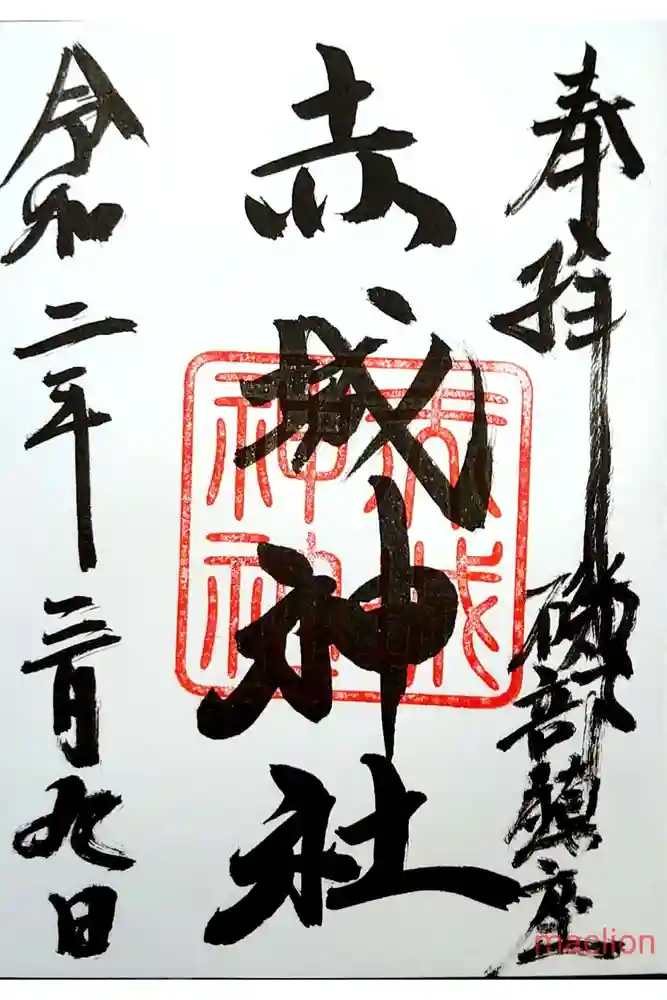 奉拝
磯部鎮座
赤城神社
赤城
神社
令和二年三月九日
maclion